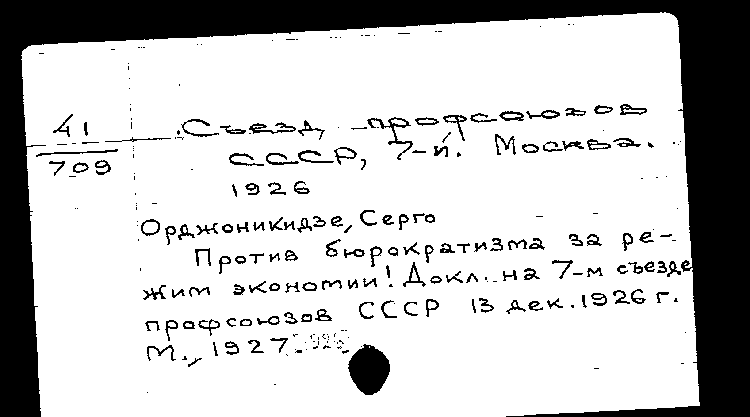 41
709
Съезд, профсоюзов
СССР, 7-й. Москва.
1926
Орджоникидзе, Серго
Против бюрократизма за ре-
жим экономии! Докл. на 7-м съезде
профсоюзов СССР 13 дек. 1926 г.
М., 1927.